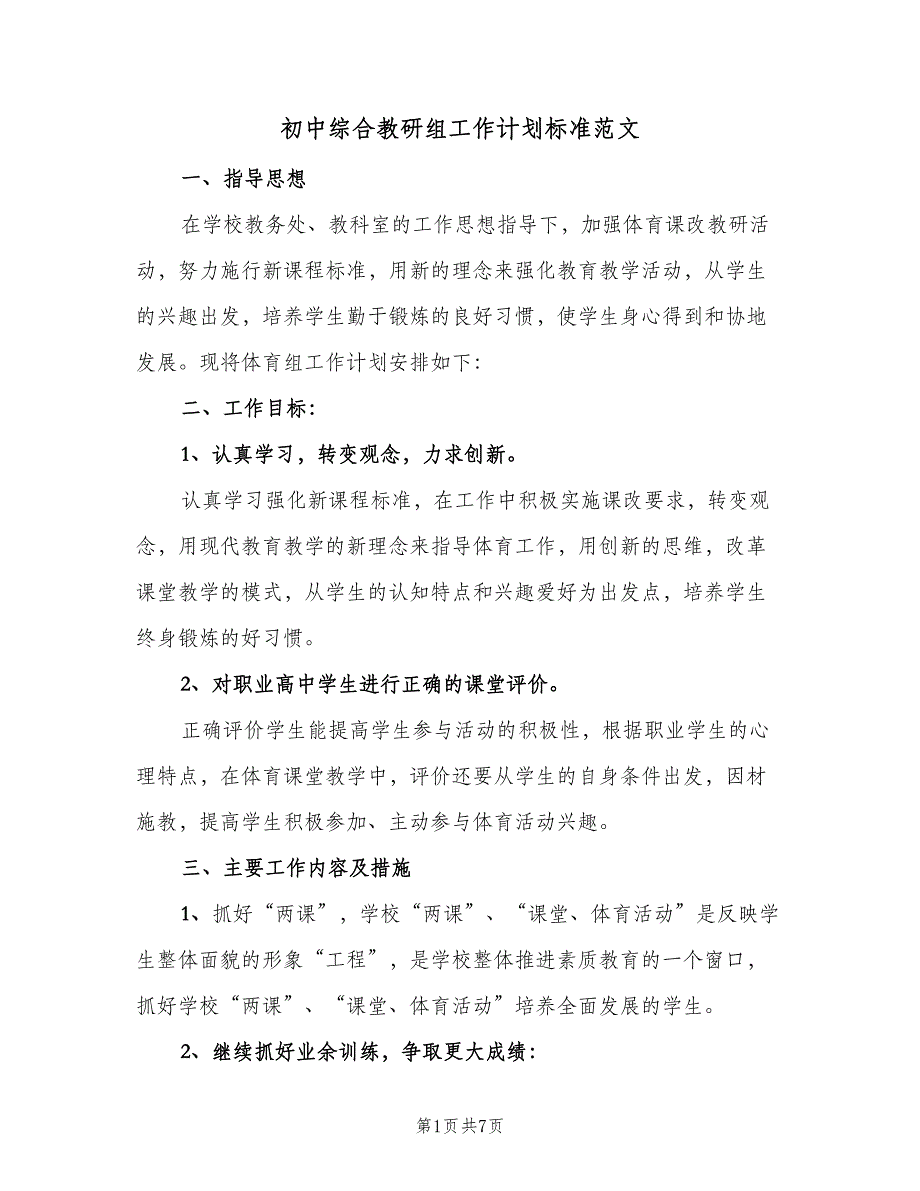 初中综合教研组工作计划标准范文
一、指导思想
在学校教务处、教科室的工作思想指导下，加强体育课改教研活
动，努力施行新课程标准，用新的理念来强化教育教学活动，从学生
的兴趣出发，培养学生勤于锻炼的良好习惯，使学生身心得到和协地
发展。现将体育组工作计划安排如下：
二、工作目标：
1、认真学习，转变观念，力求创新。
认真学习强化新课程标准，在工作中积极实施课改要求，转变观
念，用现代教育教学的新理念来指导体育工作，用创新的思维，改革
课堂教学的模式，从学生的认知特点和兴趣爱好为出发点，培养学生
终身锻炼的好习惯。
2、对职业高中学生进行正确的课堂评价。
正确评价学生能提高学生参与活动的积极性，根据职业学生的心
理特点，在体育课堂教学中，评价还要从学生的自身条件出发，因材
施教，提高学生积极参加、主动参与体育活动兴趣。
三、主要工作内容及措施
1、抓好“两课”，学校“两课”、“课堂、体育活动”是反映学
生整体面貌的形象“工程”，是学校整体推进素质教育的一个窗口，
抓好学校“两课”、“课堂、体育活动”培养全面发展的学生。
2、继续抓好业余训练，争取更大成绩：
第1页共7页